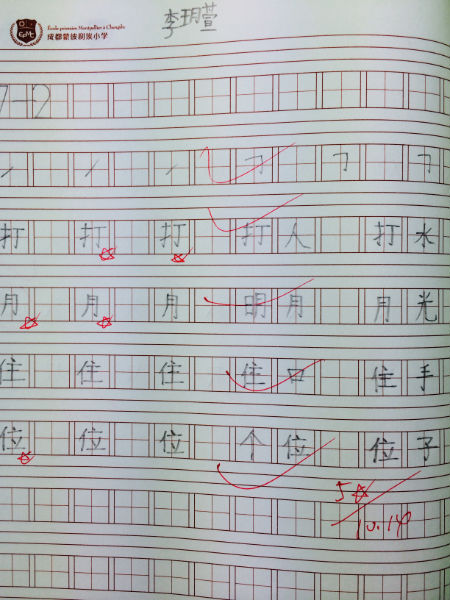 École primaire Montpellier à Chengdu
成都蒙彼利埃小学
李玥萱
7-2
打 打 打 打人 打水
月 月 月 明月 月光
住 住 住 住口 住手
位 位 位 个位 位子
5☆
10.14